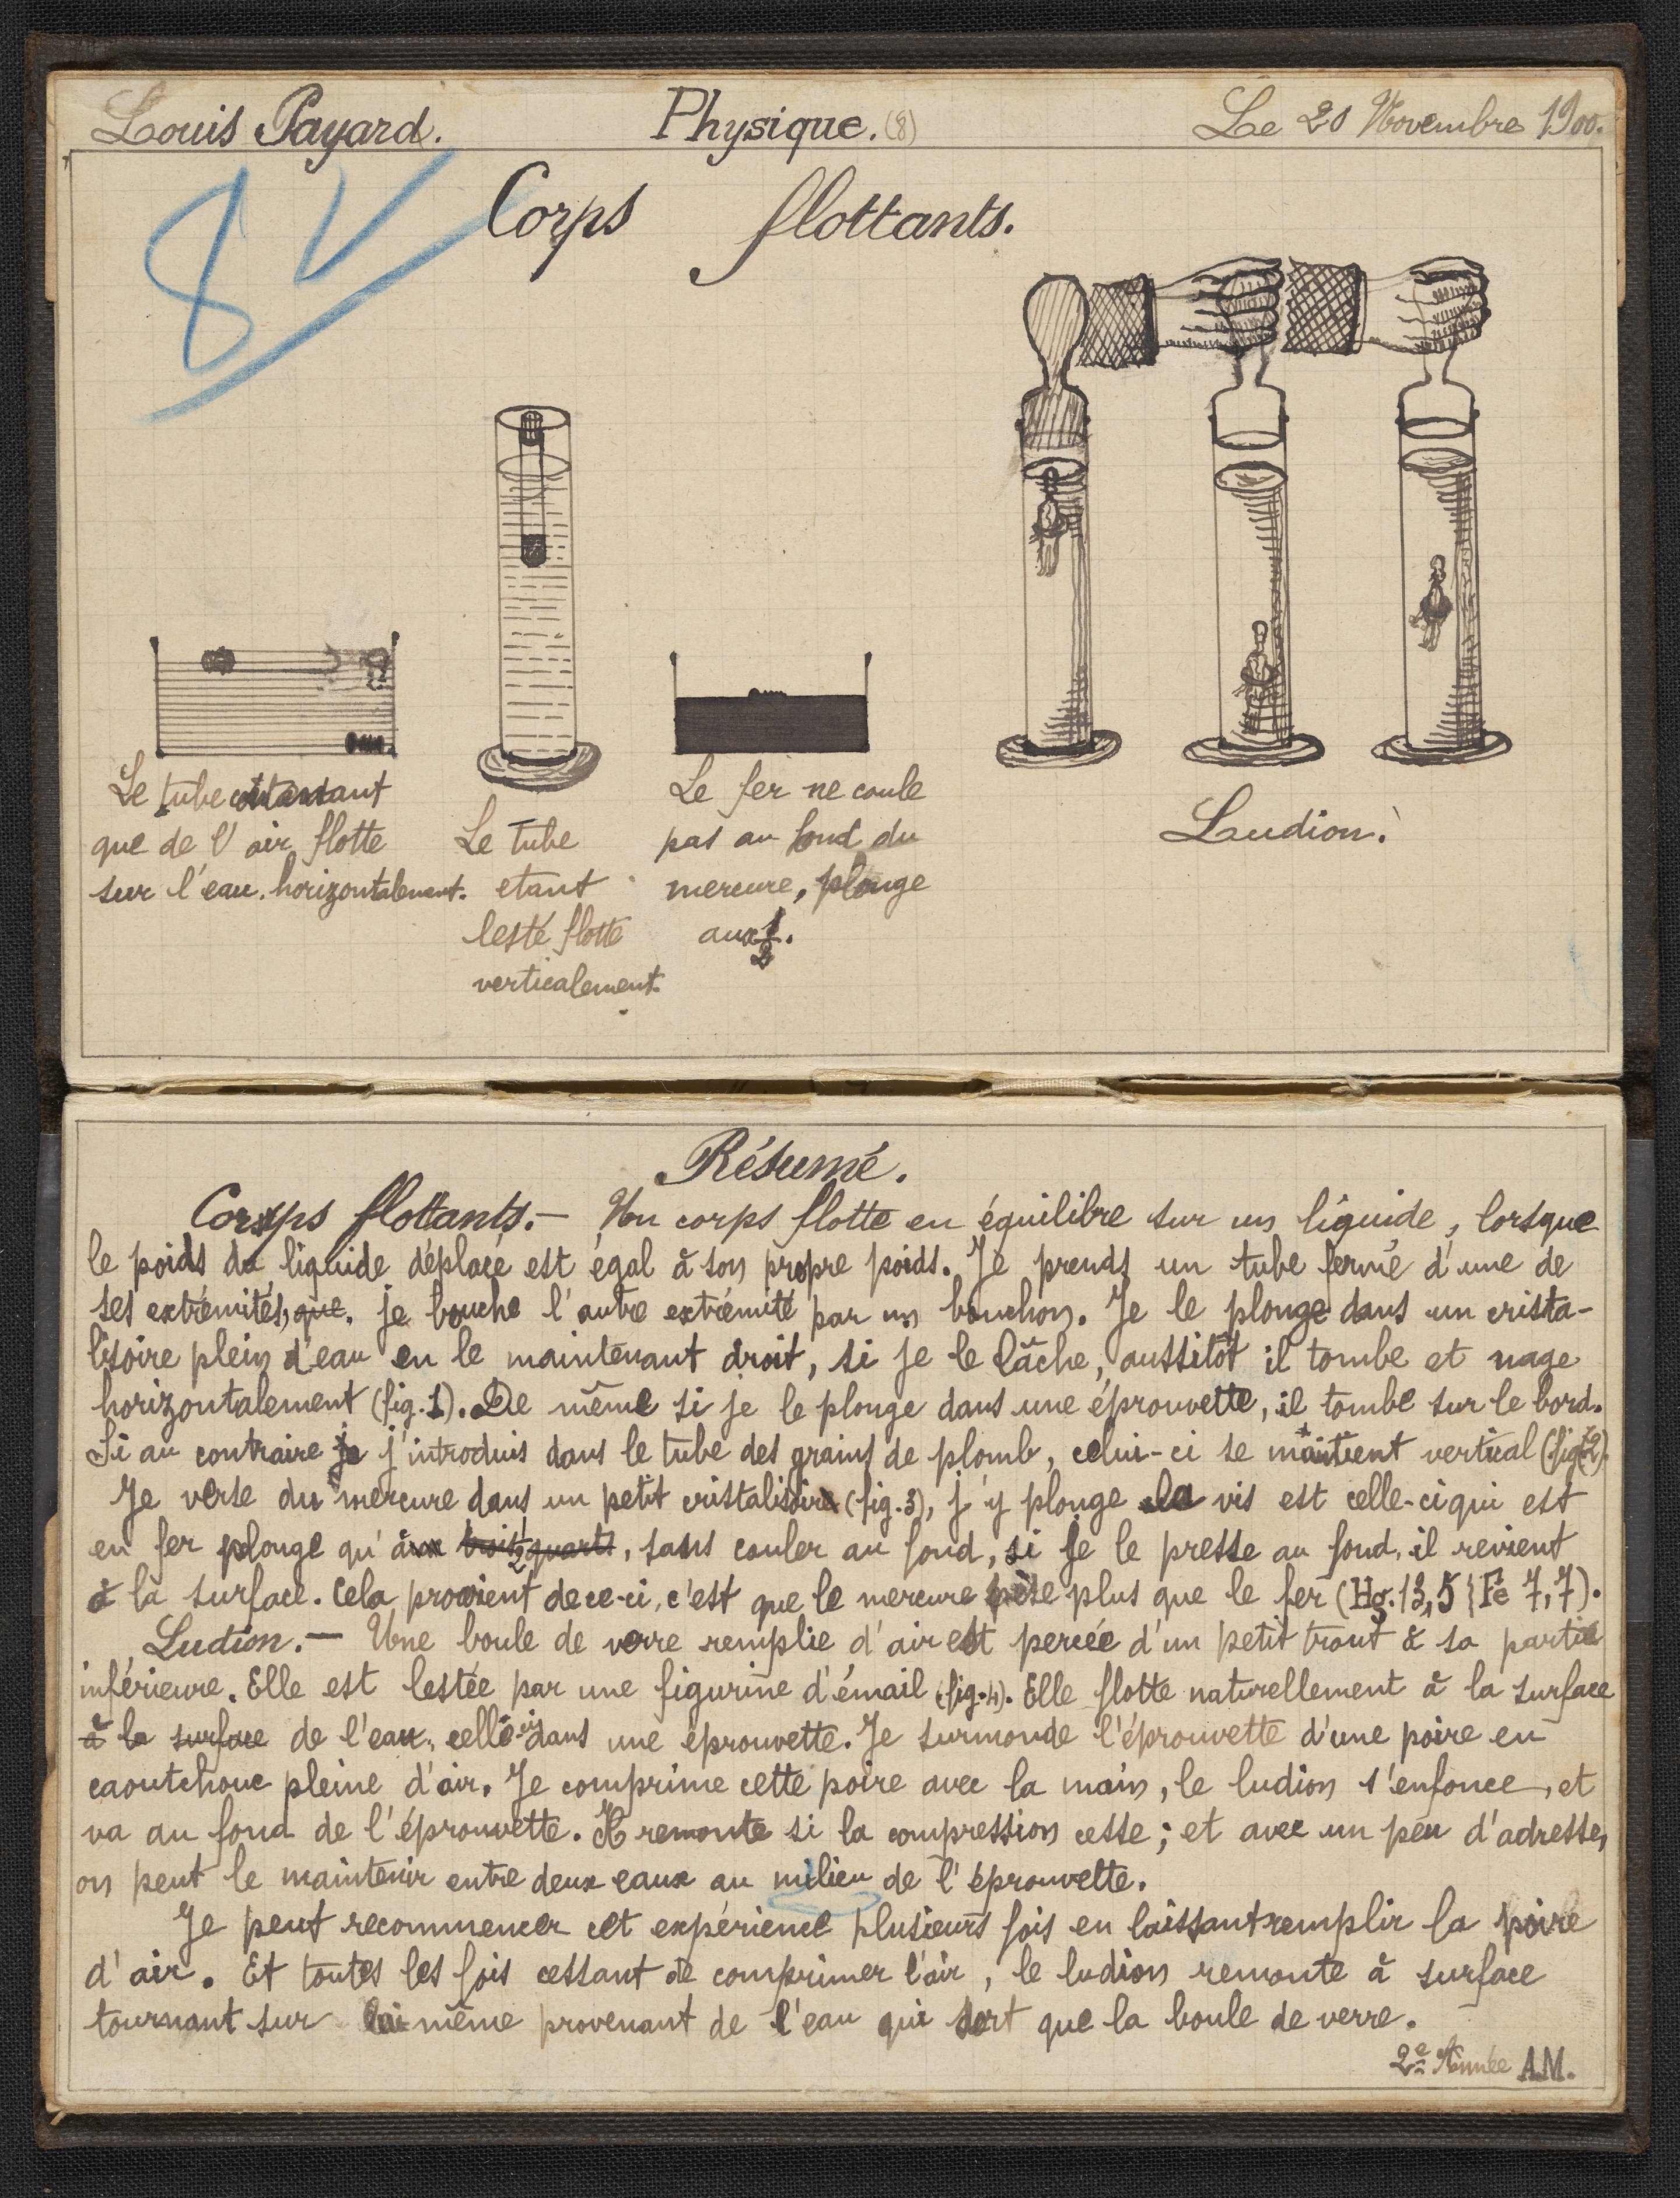 Louis Payard. Physique. (8) Le 20 Novembre 1900.
8
Corps flottants.
Le tube contenant
que de l'air flotte
sur l'eau. horizontalement.
Le tube
etant
lesté flotte
verticalement.
Le fer ne coule
pas au fond du
mercure, plonge
aux 1/2.
Ludion.
Résumé.
Corps flottants. — Un corps flotte en équilibre sur un liquide, lorsque
le poids du liquide déplacé est égal à son propre poids. Je prends un tube fermé d'une de
ses extrémités, que. je bouche l'autre extrémité par un bouchon. Je le plonge dans un crista-
lisoire plein d'eau en le maintenant droit, si je le lâche, aussitôt il tombe et nage
horizontalement (fig. 1). De même si je le plonge dans une éprouvette, il tombe sur le bord.
Si au contraire je j'introduis dans le tube des grains de plomb, celui-ci se maintient vertical (fig. 2).
Je verse du mercure dans un petit cristalisoire (fig. 3), j'y plonge la vis est celle-ci qui est
en fer plonge qu'aux trois quarts 1/2, sans couler au fond, si je le presse au fond, il revient
à la surface. Cela provient de ce-ci, c'est que le mercure pèse plus que le fer (Hg. 13,5 { Fe 7,7).
Ludion. — Une boule de verre remplie d'air est percée d'un petit trout à sa partie
inférieure. Elle est lestée par une figurine d'émail (fig. 4). Elle flotte naturellement à la surface
à la surface de l'eau, celle-ci dans une éprouvette. Je surmonde l'éprouvette d'une poire en
caoutchouc pleine d'air. Je comprime cette poire avec la main, le ludion s'enfonce, et
va au fond de l'éprouvette. Il remonte si la compression cesse ; et avec un peu d'adresse,
on peut le maintenir entre deux eaux au milieu de l'éprouvette.
Je peut recommencer cet expérience plusieurs fois en laissant remplir la poire
d'air. Et toutes les fois cessant de comprimer l'air, le ludion remonte à surface
tournant sur lui même provenant de l'eau qui sort que la boule de verre.
2e Année A.M.